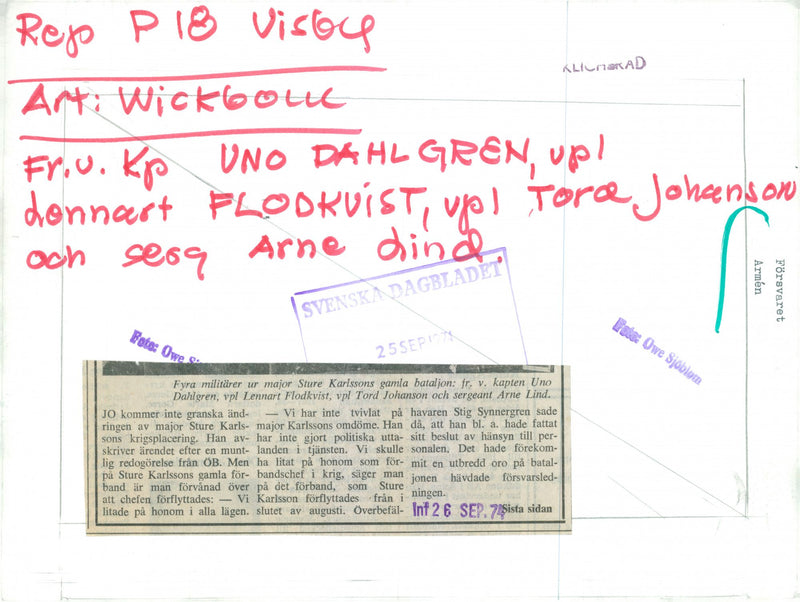 Rep P 18 Visby
KLICHERAD
Art: Wickbom
Fr. v. Kp UNO DAHLGREN, vpl
Lennart FLODKVIST, vpl Tord Johanson
och serg Arne Lind.
Försvaret
Armén
SVENSKA DAGBLADET
25 SEP 1974
Foto: Owe Sjöblom
Foto: Owe Sj
Fyra militärer ur major Sture Karlssons gamla bataljon: fr. v. kapten Uno
Dahlgren, vpl Lennart Flodkvist, vpl Tord Johanson och sergeant Arne Lind.
JO kommer inte granska änd-
ringen av major Sture Karls-
sons krigsplacering. Han av-
skriver ärendet efter en munt-
lig redogörelse från ÖB. Men
på Sture Karlssons gamla för-
band är man förvånad över
att chefen förflyttades: — Vi
litade på honom i alla lägen.
— Vi har inte tvivlat på
major Karlssons omdöme. Han
har inte gjort politiska utta-
landen i tjänsten. Vi skulle
ha litat på honom som för-
bandschef i krig, säger man
på det förband, som Sture
Karlsson förflyttades från i
slutet av augusti. Överbefäl-
havaren Stig Synnergren sade
då, att han bl. a. hade fattat
sitt beslut av hänsyn till per-
sonalen. Det hade förekom-
mit en utbredd oro på batal-
jonen hävdade försvarsled-
ningen.
Inf 26 SEP. 74
Sista sidan